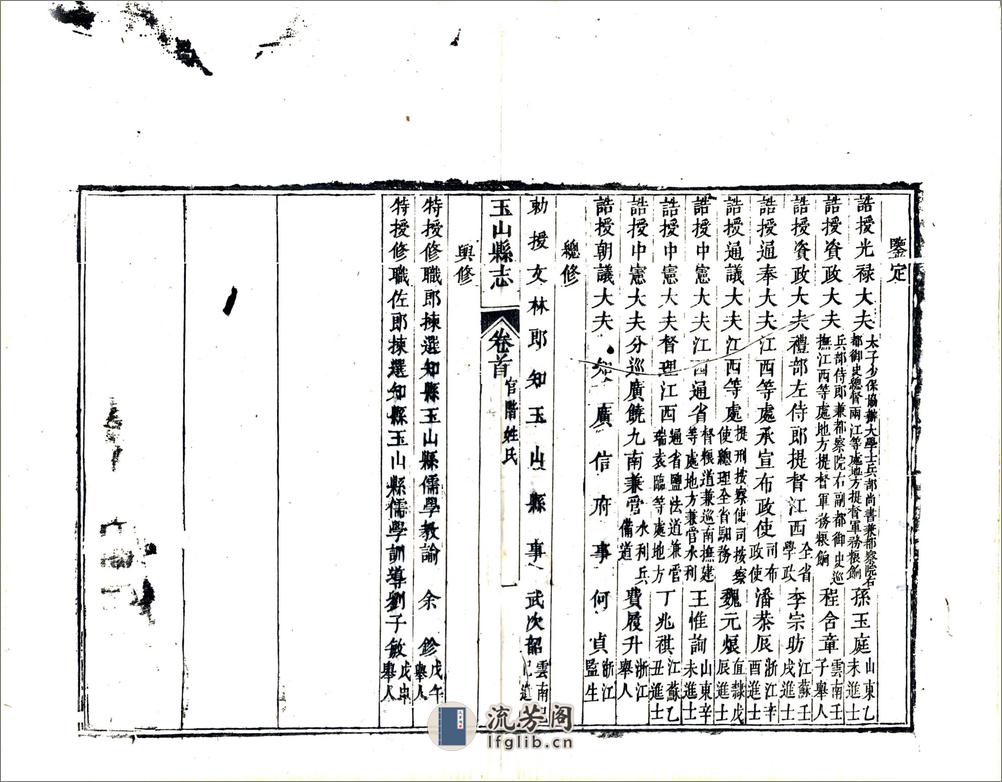 鑒定
誥授光祿大夫太子少保協辦大學士兵部尚書兼都察院右都御史總督兩江等處地方提督軍務糧餉孫玉庭山東乙未進士
誥授資政大夫兵部侍郎兼都察院右副都御史巡撫江西等處地方提督軍務糧餉程含章雲南壬子舉人
誥授資政大夫禮部左侍郎提督江西全省學政李宗昉江蘇壬戌進士
誥授通奉大夫江西等處承宣布政使司布政使潘恭辰浙江辛酉進士
誥授通議大夫江西等處提刑按察使司按察使總理全省驛務魏元烺直隸戊辰進士
誥授中憲大夫江西通省督糧道兼巡南撫建等處地方兼管水利王惟詢山東辛未進士
誥授中憲大夫督理江西通省鹽法道兼管瑞袁臨等處地方丁兆祺江蘇乙丑進士
誥授中憲大夫分巡廣饒九南兼管水利兵備道費履升浙江舉人
誥授朝議大夫知廣信府事何貞浙江監生
總修
勅授文林郎知玉山縣事武次韶雲南
玉山縣志
卷首
官階姓氏
一
與修
特授修職郎揀選知縣玉山縣儒學教諭余鉁戊午舉人
特授修職佐郎揀選知縣玉山縣儒學訓導劉子敏戊申舉人
流芳閣
lfglib.cn